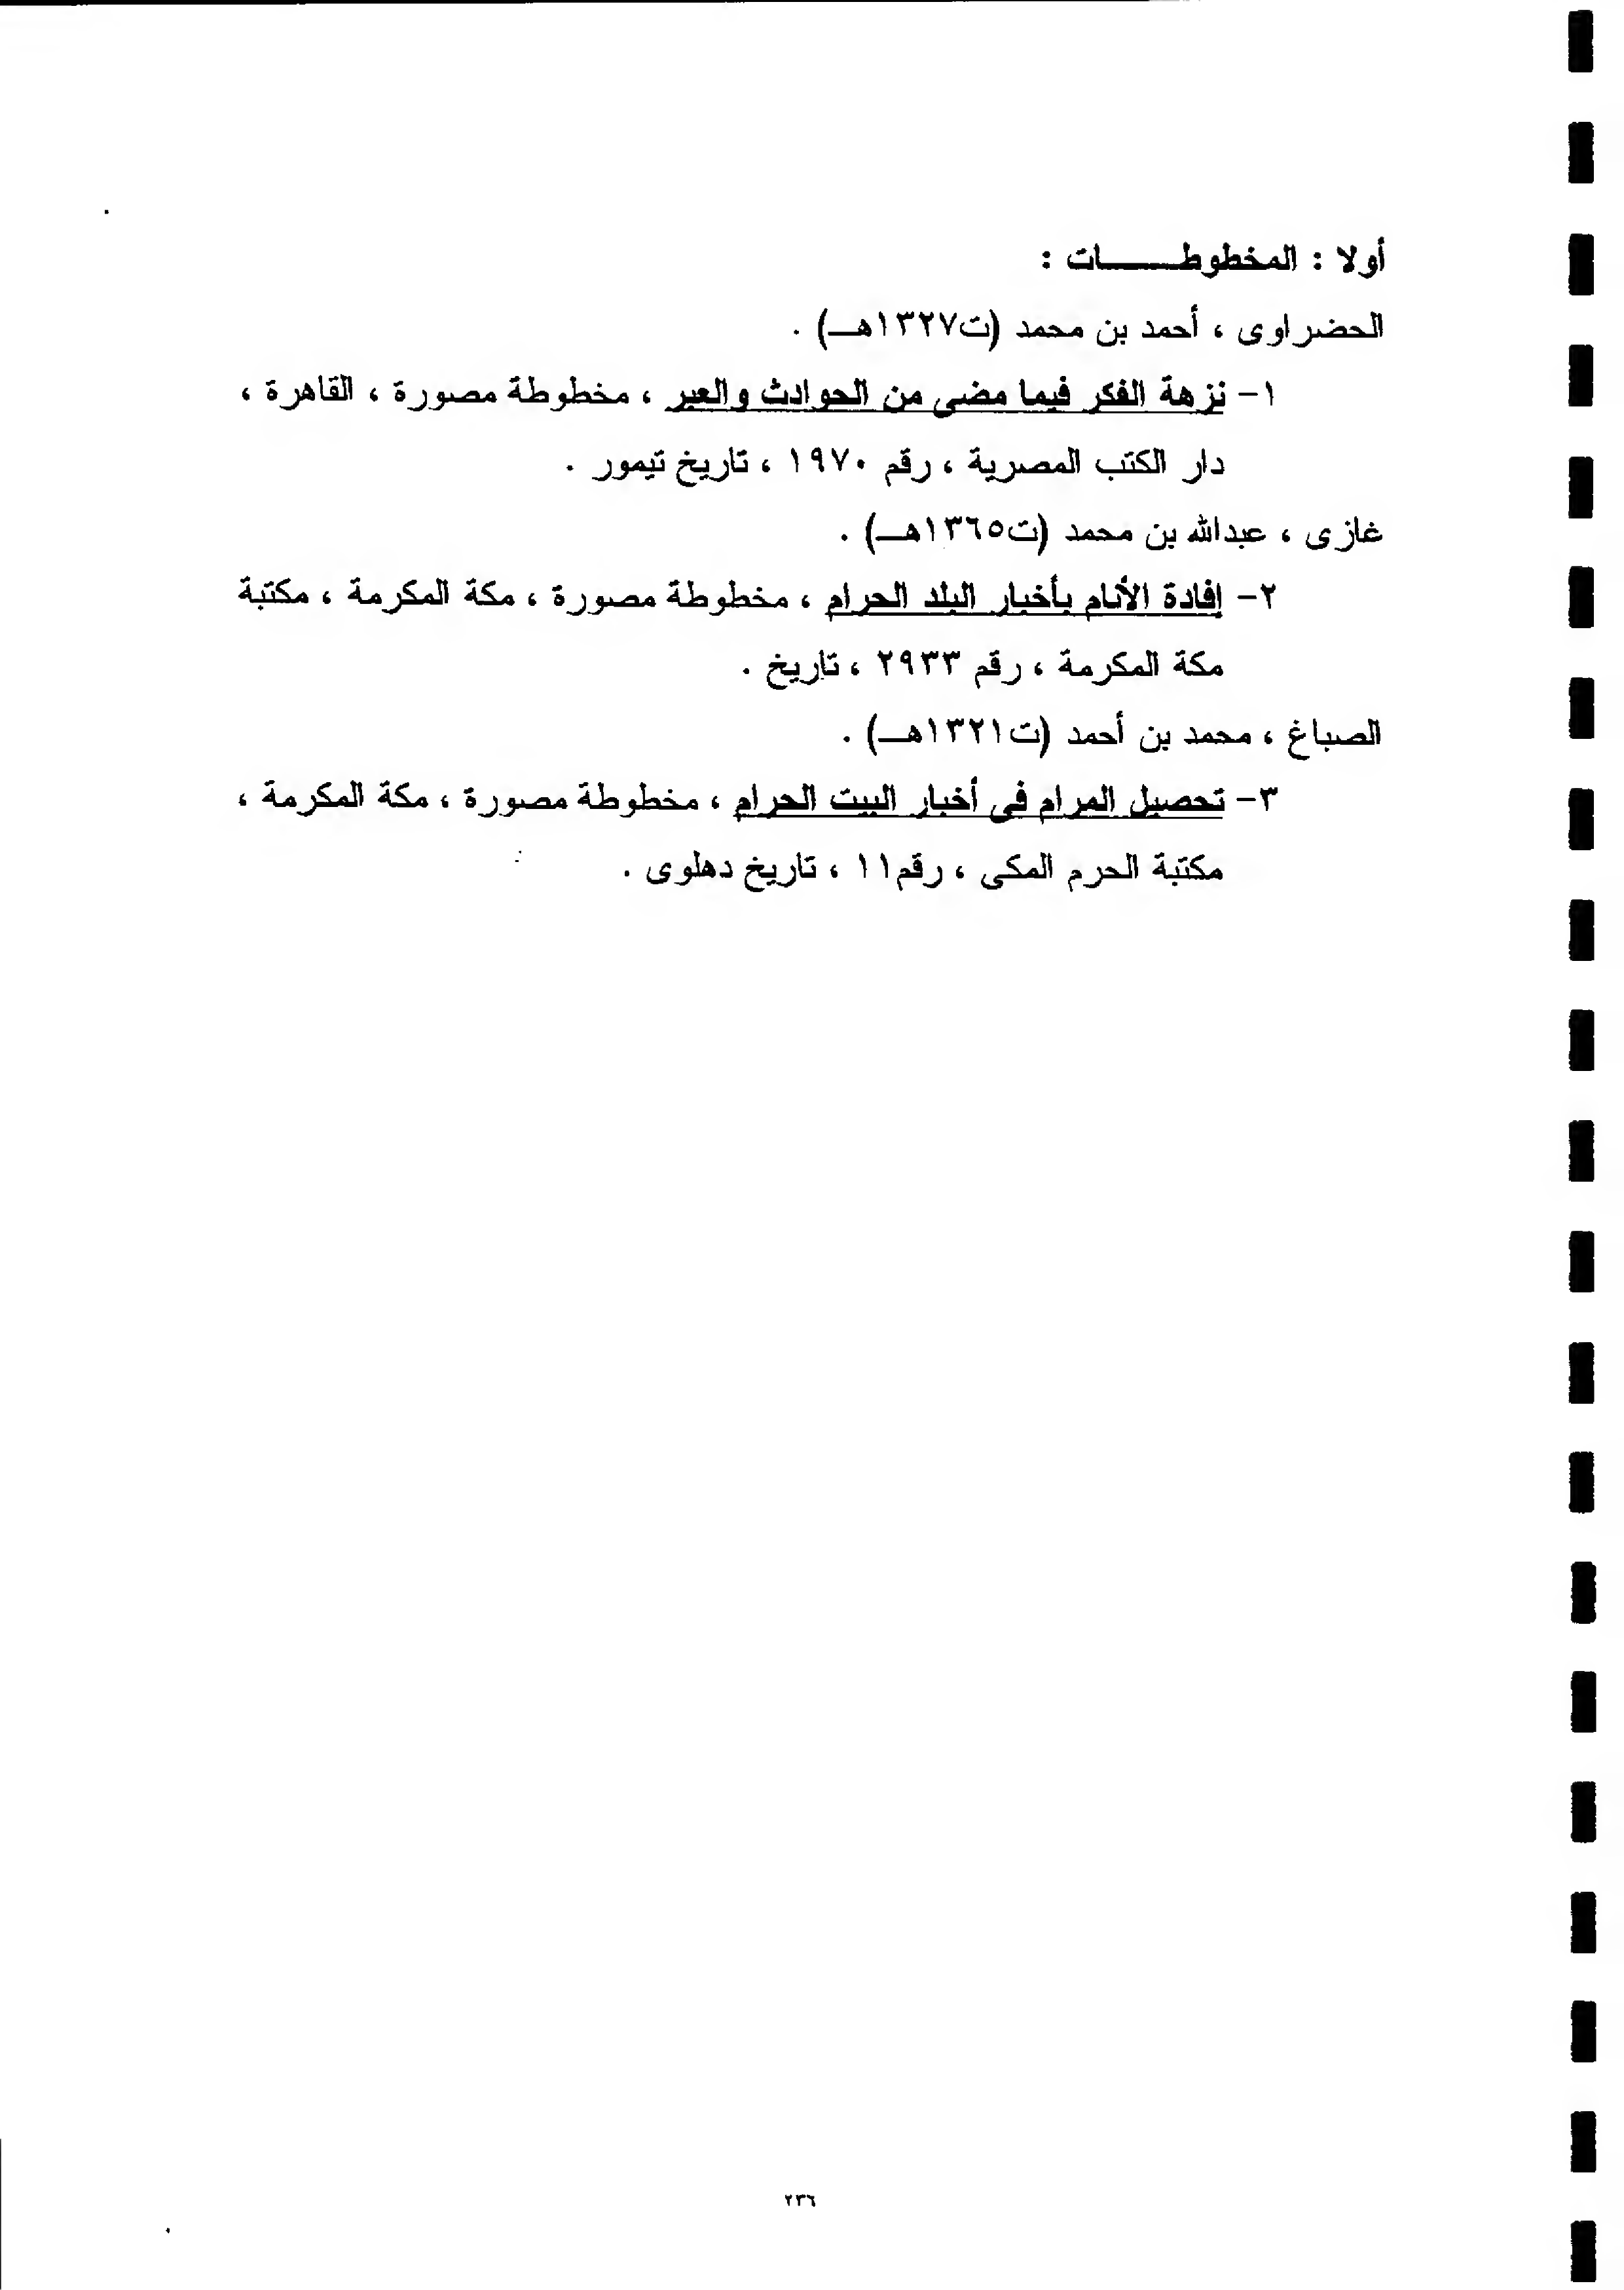 أولا : المخطوطـــــات :
الحضراوى ، أحمد بن محمد (ت١٣٢٧هـ) .
١- نزهة الفكر فيما مضى من الحوادث والعبر ، مخطوطة مصورة ، القاهرة ،
دار الكتب المصرية ، رقم ١٩٧٠ ، تاريخ تيمور .
غازى ، عبدالله بن محمد (ت١٣٦٥هـ) .
٢- إفادة الأنام بأخبار البلد الحرام ، مخطوطة مصورة ، مكة المكرمة ، مكتبة
مكة المكرمة ، رقم ٢٩٣٣ ، تاريخ .
الصباغ ، محمد بن أحمد (ت١٣٢١هـ) .
٣- تحصيل المرام فى أخبار البيت الحرام ، مخطوطة مصورة ، مكة المكرمة ،
مكتبة الحرم المكى ، رقم١١ ، تاريخ دهلوى .
٢٣٦